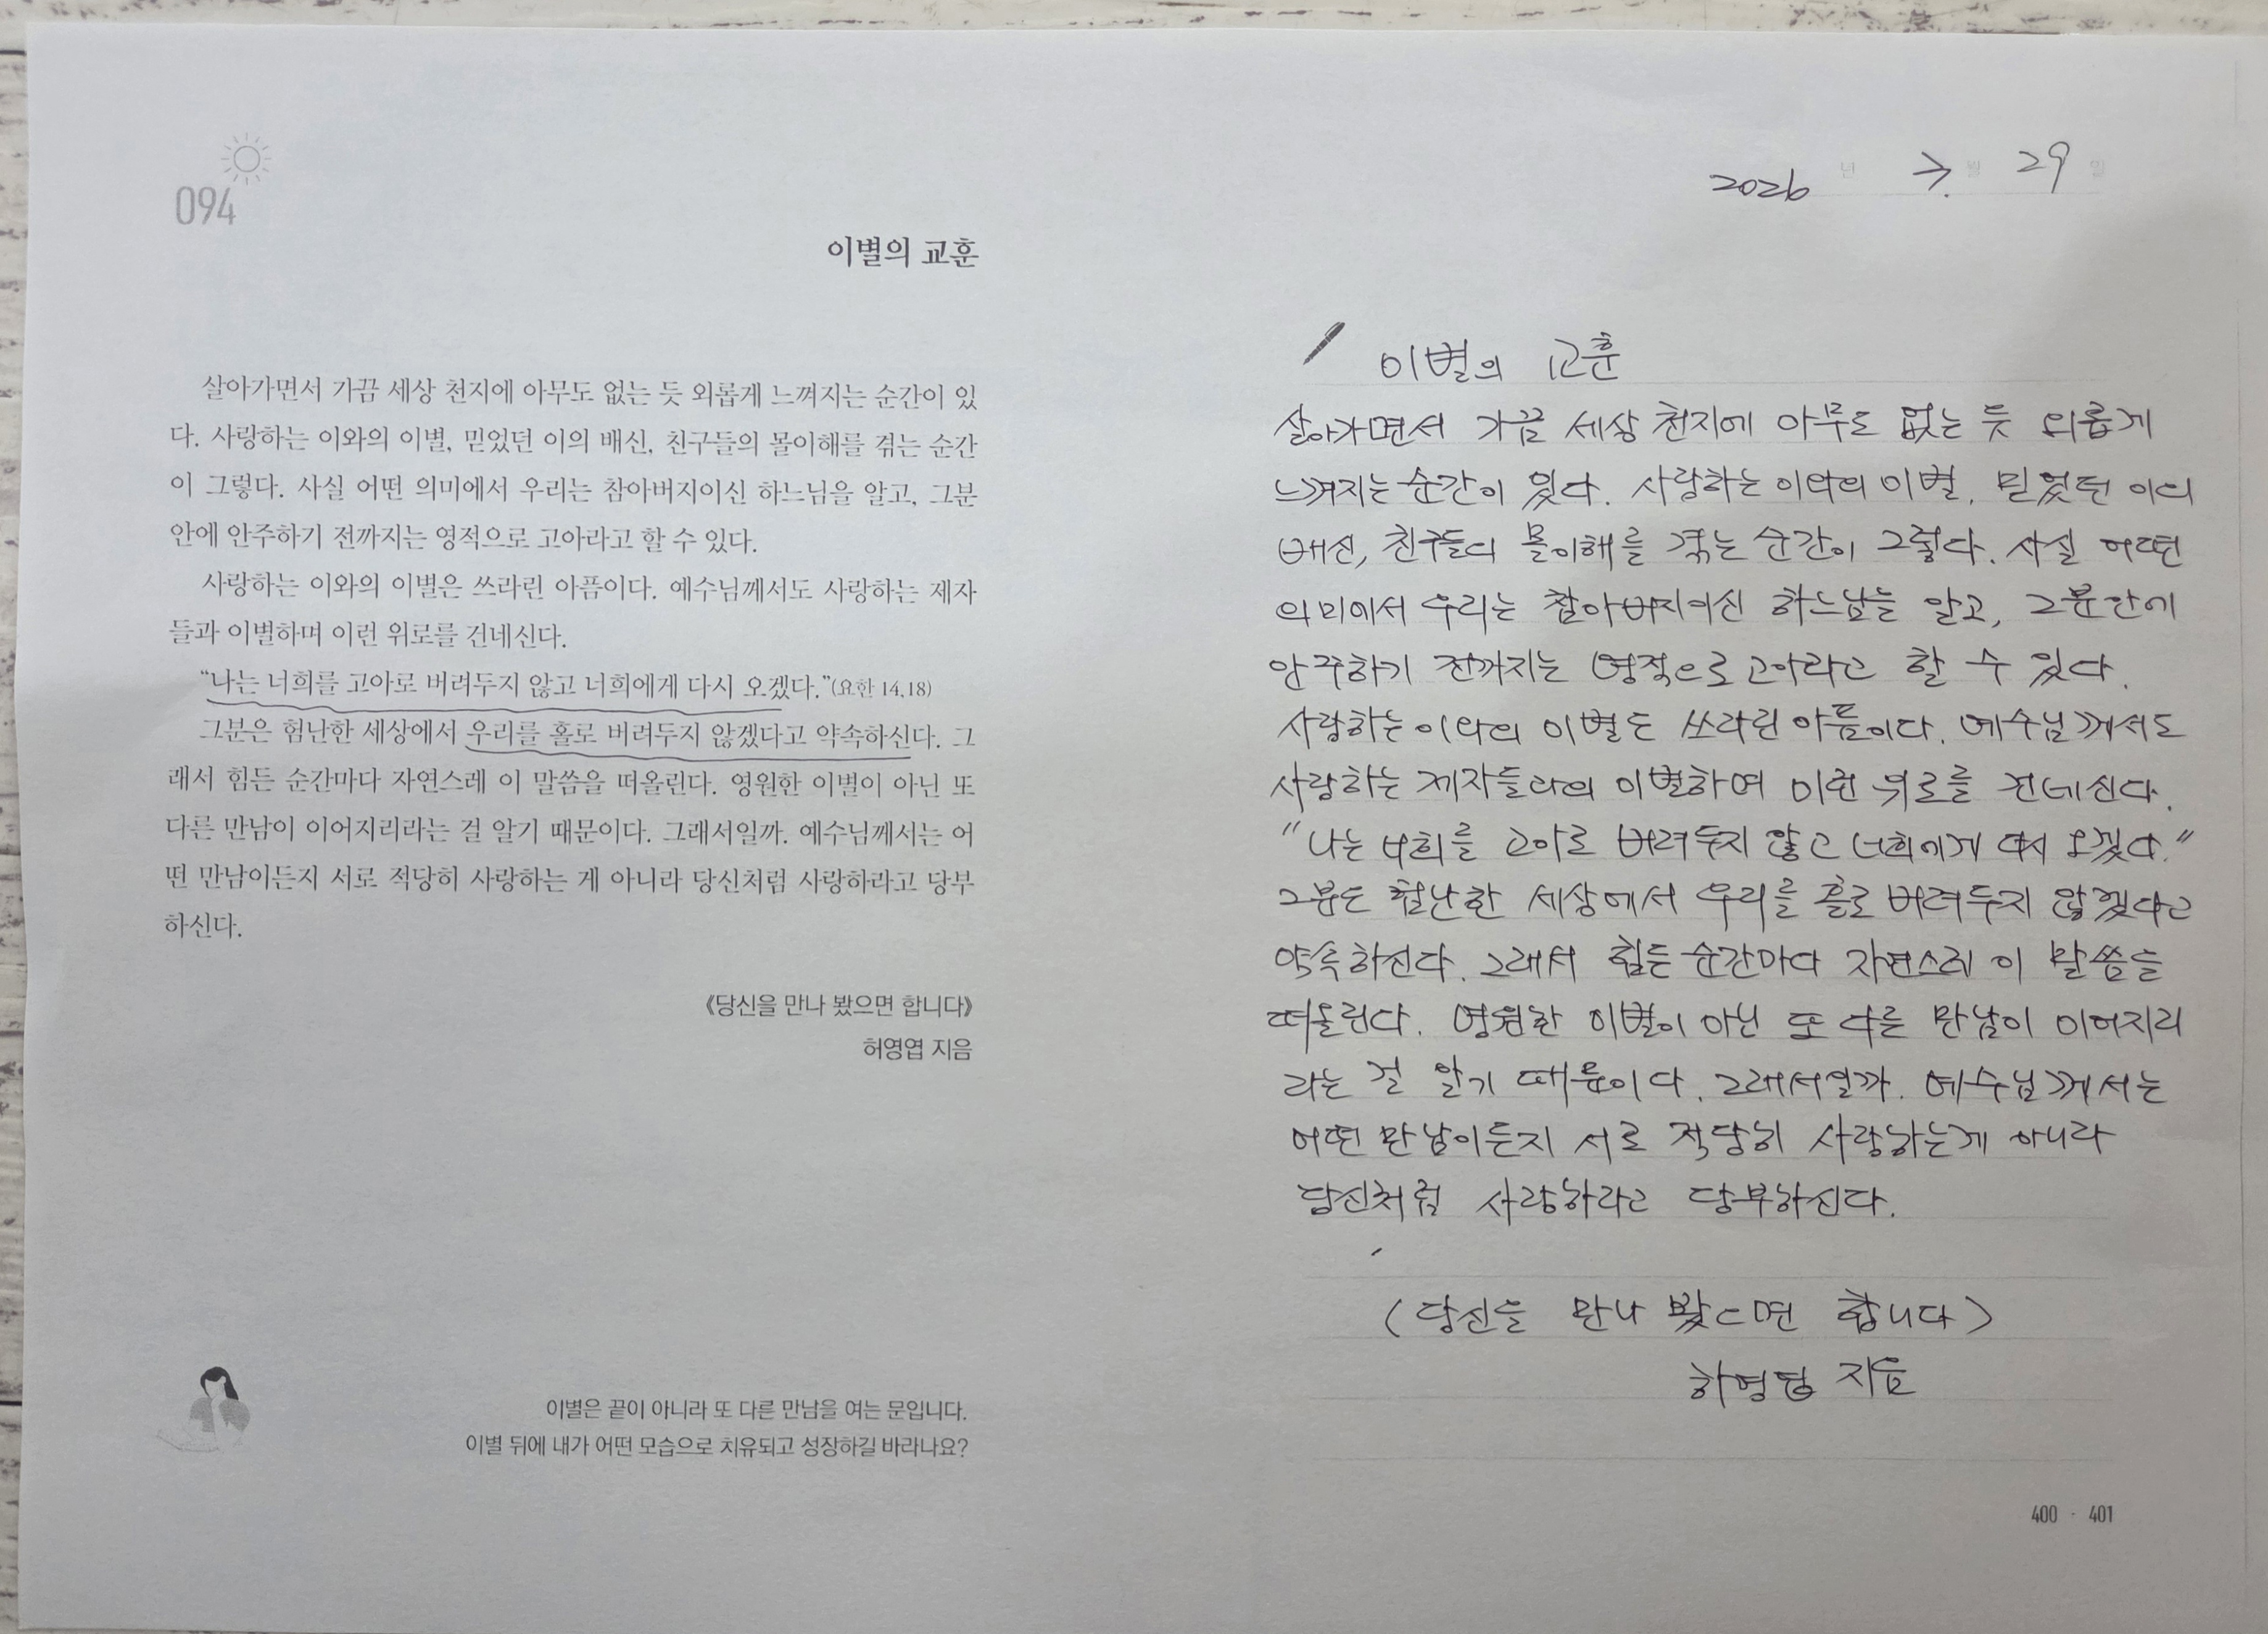 094
이별의 교훈
살아가면서 가끔 세상 천지에 아무도 없는 듯 외롭게 느껴지는 순간이 있
다. 사랑하는 이와의 이별, 믿었던 이의 배신, 친구들의 몰이해를 겪는 순간
이 그렇다. 사실 어떤 의미에서 우리는 참아버지이신 하느님을 알고, 그분
안에 안주하기 전까지는 영적으로 고아라고 할 수 있다.
사랑하는 이와의 이별은 쓰라린 아픔이다. 예수님께서도 사랑하는 제자
들과 이별하며 이런 위로를 건네신다.
“나는 너희를 고아로 버려두지 않고 너희에게 다시 오겠다.”(요한 14,18)
그분은 험난한 세상에서 우리를 홀로 버려두지 않겠다고 약속하신다. 그
래서 힘든 순간마다 자연스레 이 말씀을 떠올린다. 영원한 이별이 아닌 또
다른 만남이 이어지리라는 걸 알기 때문이다. 그래서일까. 예수님께서는 어
떤 만남이든지 서로 적당히 사랑하는 게 아니라 당신처럼 사랑하라고 당부
하신다.
《당신을 만나 봤으면 합니다》
허영엽 지음
이별은 끝이 아니라 또 다른 만남을 여는 문입니다.
이별 뒤에 내가 어떤 모습으로 치유되고 성장하길 바라나요?
2026 년 7. 월 29 일
이별의 교훈
살아가면서 가끔 세상 천지에 아무도 없는 듯 외롭게
느껴지는 순간이 있다. 사랑하는 이와의 이별, 믿었던 이의
배신, 친구들의 몰이해를 겪는 순간이 그렇다. 사실 어떤
의미에서 우리는 참아버지이신 하느님을 알고, 그분안에
안주하기 전까지는 영적으로 고아라고 할 수 있다.
사랑하는 이와의 이별은 쓰라린 아픔이다. 예수님께서도
사랑하는 제자들과의 이별하며 이런 위로를 건네신다.
"나는 너희를 고아로 버려두지 않고 너희에게 다시 오겠다."
그분은 험난한 세상에서 우리를 홀로 버려두지 않겠다고
약속하신다. 그래서 힘든 순간마다 자연스레 이 말씀을
떠올린다. 영원한 이별이 아닌 또 다른 만남이 이어지리
라는 걸 알기 때문이다. 그래서일까. 예수님께서는
어떤 만남이든지 서로 적당히 사랑하는게 아니라
당신처럼 사랑하라고 당부하신다.
(당신을 만나 봤으면 합니다)
지음
400 · 401